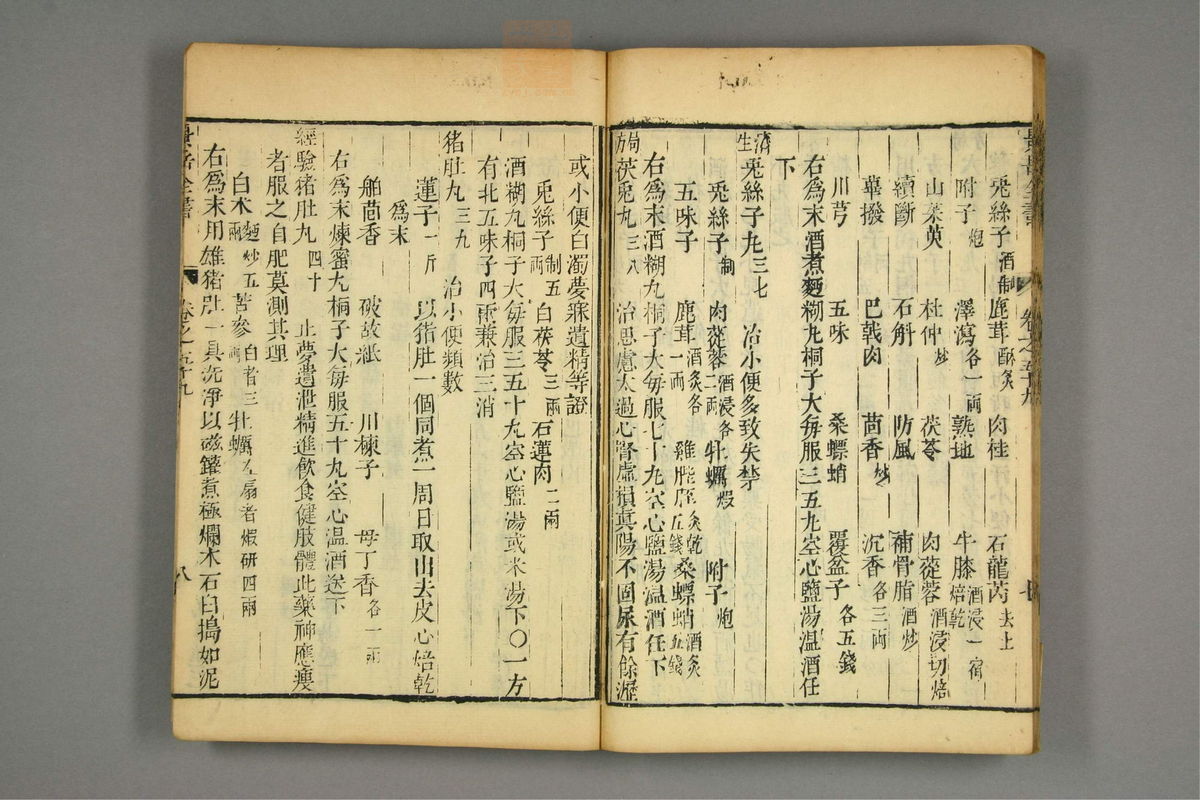 景岳全書 卷之五十九 七
兎絲子酒制 鹿茸酥炙 肉桂 石龍芮去土
附子炮 澤瀉各一兩 熟地 牛膝酒浸一宿焙乾
山茱萸 杜仲炒 茯苓 肉蓯蓉酒浸切焙
續斷 石斛 防風 補骨脂酒炒
蓽撥 巴戟肉 茴香炒 沉香各三兩
川芎 五味 桑螵蛸 覆盆子各五錢
右爲末酒煮麵糊丸桐子大每服三五十丸空心鹽湯溫酒任
下
濟生兎絲子丸三七 治小便多致失禁
兎絲子制 肉蓯蓉二兩酒浸各 牡蠣煅 附子炮
五味子 鹿茸一兩酒炙各 雞胵胵炙乾五錢 桑螵蛸酒炙五錢
右爲末酒糊丸桐子大每服七十丸空心鹽湯溫酒任下
局方茯兎丸三八 治思慮太過心腎虛損真陽不固尿有餘瀝
或小便白濁夢寐遺精等證
兎絲子制五兩 白茯苓三兩 石蓮肉二兩
酒糊丸桐子大每服三五十丸空心鹽湯或米湯下〇一方
有北五味子四兩兼治三消
猪肚丸三九 治小便頻數
蓮子一斤 以猪肚一個同煮一周日取出去皮心焙乾
爲末
舶茴香 破故紙 川楝子 母丁香各一兩
右爲末煉蜜丸桐子大每服五十丸空心温酒送下
經驗猪肚丸四十 止夢遺泄精進飲食健肢體此藥神應瘦
者服之自肥莫測其理
白朮麵炒五兩 苦參白者三兩 牡蠣左扇者煅研四兩
右爲末用雄猪肚一具洗淨以磁罐煮極爛木石臼搗如泥
景岳全書 卷之五十九 八